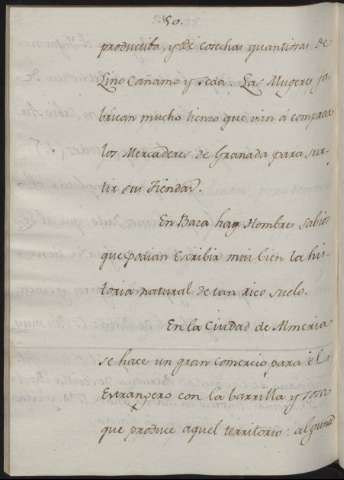 80.
productiba, y de cosechas quantiosas de
Lino Cañamo y seda. Las Mugeres fa-
brican mucho lienzo que vin á comprar
los Mercaderes de Granada para sur-
tir sus Tiendas.
En Baca hay Hombres sabios
que podian Escribir mui bien la his-
toria natural de tan rico suelo.
En la Ciudad de Almeria
se hace un gran comercio para el
Estrangero con la barrilla y
que produce aquel territorio: